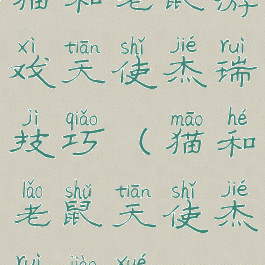 猫和老鼠游
xì tiān shǐ jié ruì
戏天使杰瑞
jì qiǎo māo hé
技巧（猫和
lǎo shǔ tiān shǐ jié
老鼠天使杰
ruì jiào xué